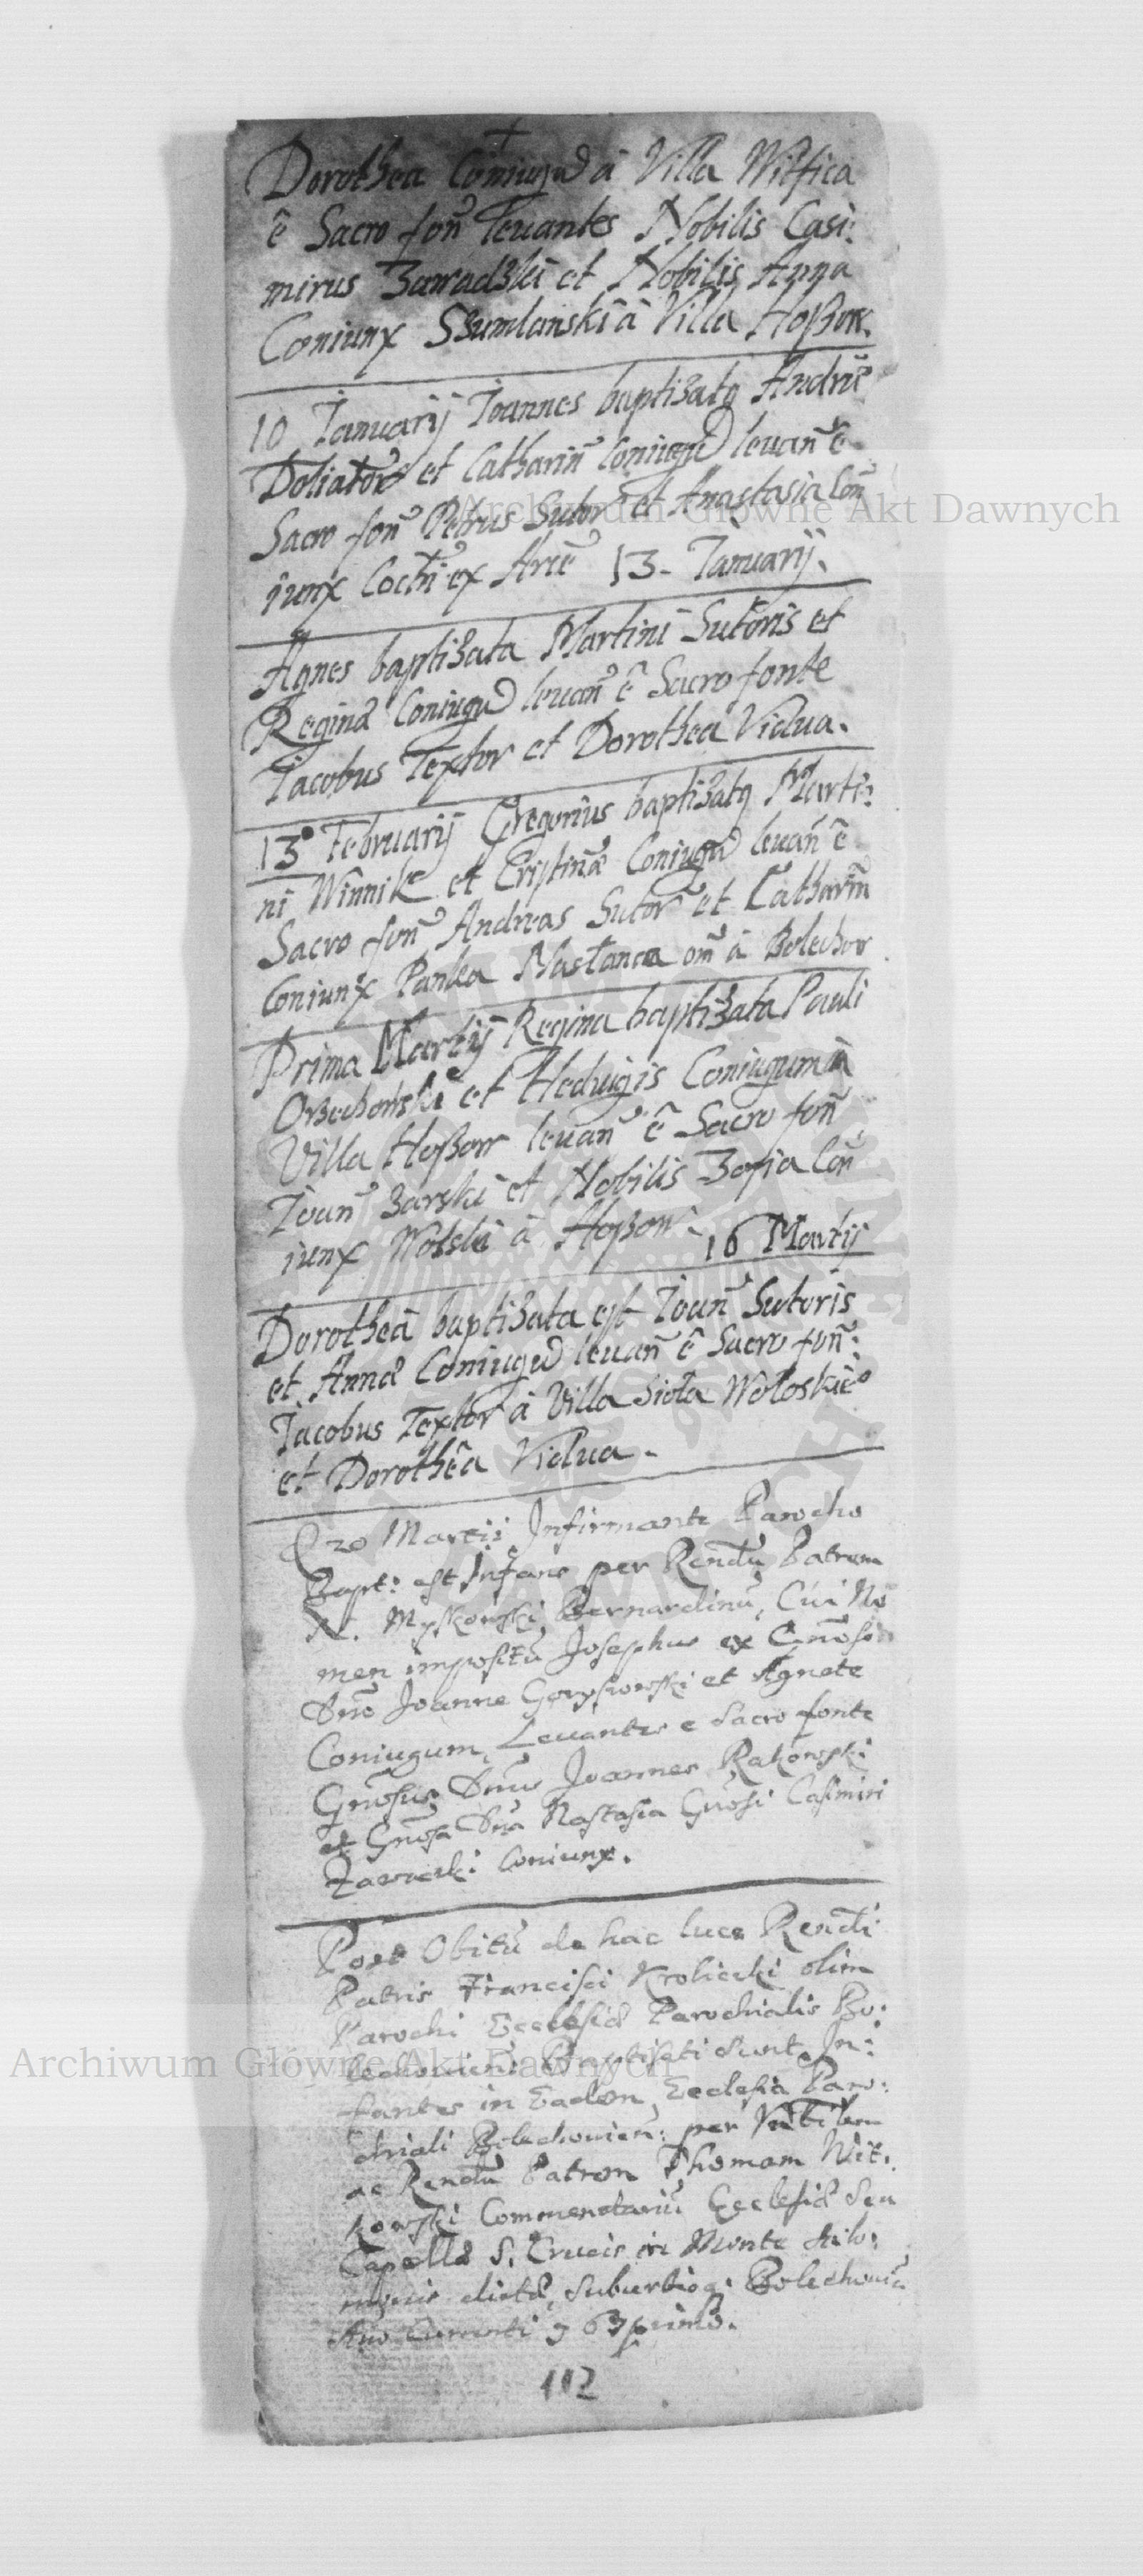 Dorothea Coniugū à Villa Witfica
ê Sacro fonˉ leuantes Nobilis Casi:
mirus Zawadzki et Nobilis Anna
Coniunx Szumlanski à Villa Hoßow.
10 Januarij Joannes baptizatq Andrē
Doliatorˉ et Catharinˉ Coniugū leuanˉ ê
Sacro fonˉ Petrus Sutor et Anastasia Con
iunx Cocti ex Arcē 13. Januarij.
Agnes baptizata Martini Sutoris et
Reginæ Coniugū leuanˉ ê Sacro fonte
Jacobus Textor et Dorothea Vidua.
13° Februarij Gregorius baptizatq Marti:
ni Winnik et Cristinæ Coniugū leuanˉ ê
Sacro fonˉ Andreas Sutor et Catharinˉ
Coniunx Panka Nastanca omˉ à Bolechow
Prima Martij Regina baptizata Pauli
Orzechowski et Heduigis Coniugum à
Villa Hoßow leuanˉ ê Sacro fonˉ
Joanˉ Zarski et Nobilis Zofia Conˉ
iunx Wolski à Hoßow. 16 Martij
Dorotheâ baptizata est Joanˉ Sutoris
et Annæ Coniugū leuanˉ ê Sacro fonˉ:
Jacobus Textor à Villa Siola Wołoskie°
et Dorothêa Vidua.
20 Martij Infirmante Parocho
Bapt: est Infans per Rendū Patrem
N. Myskowski Bernardinū, Cui No
men impositū Josephus ex Gnoso
Dno Joanne Gorysiowski et Agnete
Coniugum, Leuantes e Sacro fonte
Gnosus Dnus Joannes Rakowski
et Gnosa Dna Nastasia Gnosi Casimiri
Zawadzki Coniunx.
Post Obitū de hac luce Rendi
Patris Francisci Krolicki olim
Parochi Ecclesiæ Parochialis Bo:
lechouien: Baptisati sunt In:
fantes in Eadem Ecclesia Paro:
chiali Bolechouien: per
ac Rendū Patrem Thomam Wit:
kowski Commendariū Ecclesiæ Seu
Capellæ S. Crucis in Monte
dictæ, Suburbio Bolechouiˉ
Ano Currenti
112
Archiwum Główne Akt Dawnych
Archiwum Główne Akt Dawnych